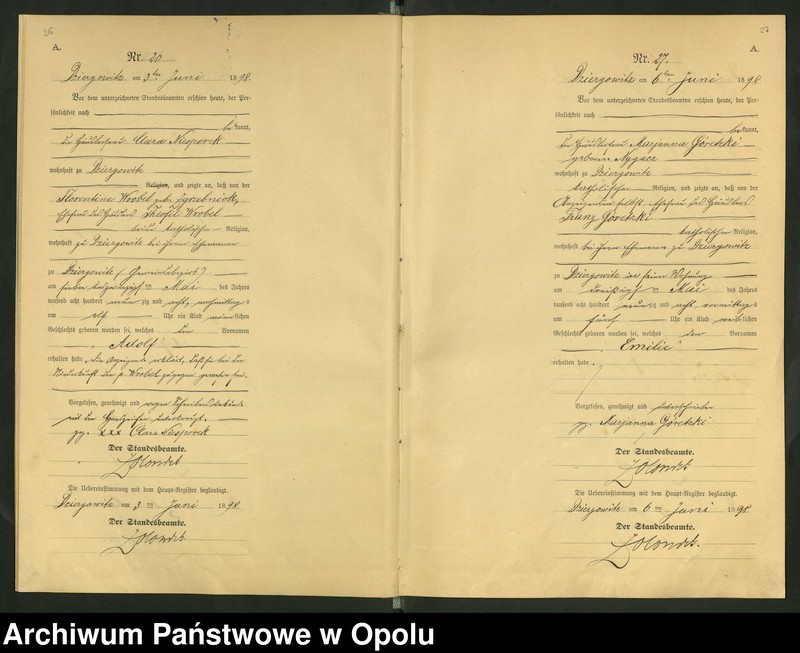 26
A.
Nr. 20
Dziergowitz am 3ten Juni 1898.
Vor dem unterzeichneten Standesbeamten erschien heute, der Per-
sönlichkeit nach
bekannt,
die Häuslerfrau Clara Nasporek
wohnhaft zu Dziergowitz
Religion, und zeigte an, daß von der
Florentine Wrobel geb.
Ehefrau des Häuslers Theofil Wrobel
beide katholischer Religion,
wohnhaft zu Dziergowitz bei ihrem Ehemanne
zu Dziergowitz
am sieben und zwanzigsten Mai des Jahres
tausend acht hundert neunzig und acht, nachmittags
um elf Uhr ein Kind männlichen
Geschlechts geboren worden sei, welches den Vornamen
Adolf
erhalten habe, die Anzeigende erklärt, daß sie bei der
Niederkunft der p. Wrobel zugegen gewesen sei.
Vorgelesen, genehmigt und wegen Schreibensunkunde
mit den Handzeichen unterkreuzt.
gez. xxx Clara Nasporek
Der Standesbeamte.
Zolondek
Die Uebereinstimmung mit dem Haupt-Register beglaubigt.
Dziergowitz am 3ten Juni 1898.
Der Standesbeamte.
Zolondek
27
A.
Nr. 27.
Dziergowitz am 6ten Juni 1898
Vor dem unterzeichneten Standesbeamten erschien heute, der Per-
sönlichkeit nach
bekannt,
die Häuslerfrau Marjanna Göretzki
geborene Nygace
wohnhaft zu Dziergowitz
katholischer Religion, und zeigte an, daß von der
Anzeigenden selbst, Ehefrau des Häuslers
Franz Göretzki
katholischer Religion,
wohnhaft bei ihrem Ehemanne zu Dziergowitz
zu Dziergowitz in seiner Wohnung
am dreißigsten Mai des Jahres
tausend acht hundert neunzig und acht, vormittags
um fünf Uhr ein Kind weiblichen
Geschlechts geboren worden sei, welches den Vornamen
Emilie
erhalten habe.
Vorgelesen, genehmigt und unterschrieben
gez. Marjanna Göretzki
Der Standesbeamte.
Zolondek
Die Uebereinstimmung mit dem Haupt-Register beglaubigt.
Dziergowitz am 6ten Juni 1898
Der Standesbeamte.
Zolondek.
Archiwum Państwowe w Opolu